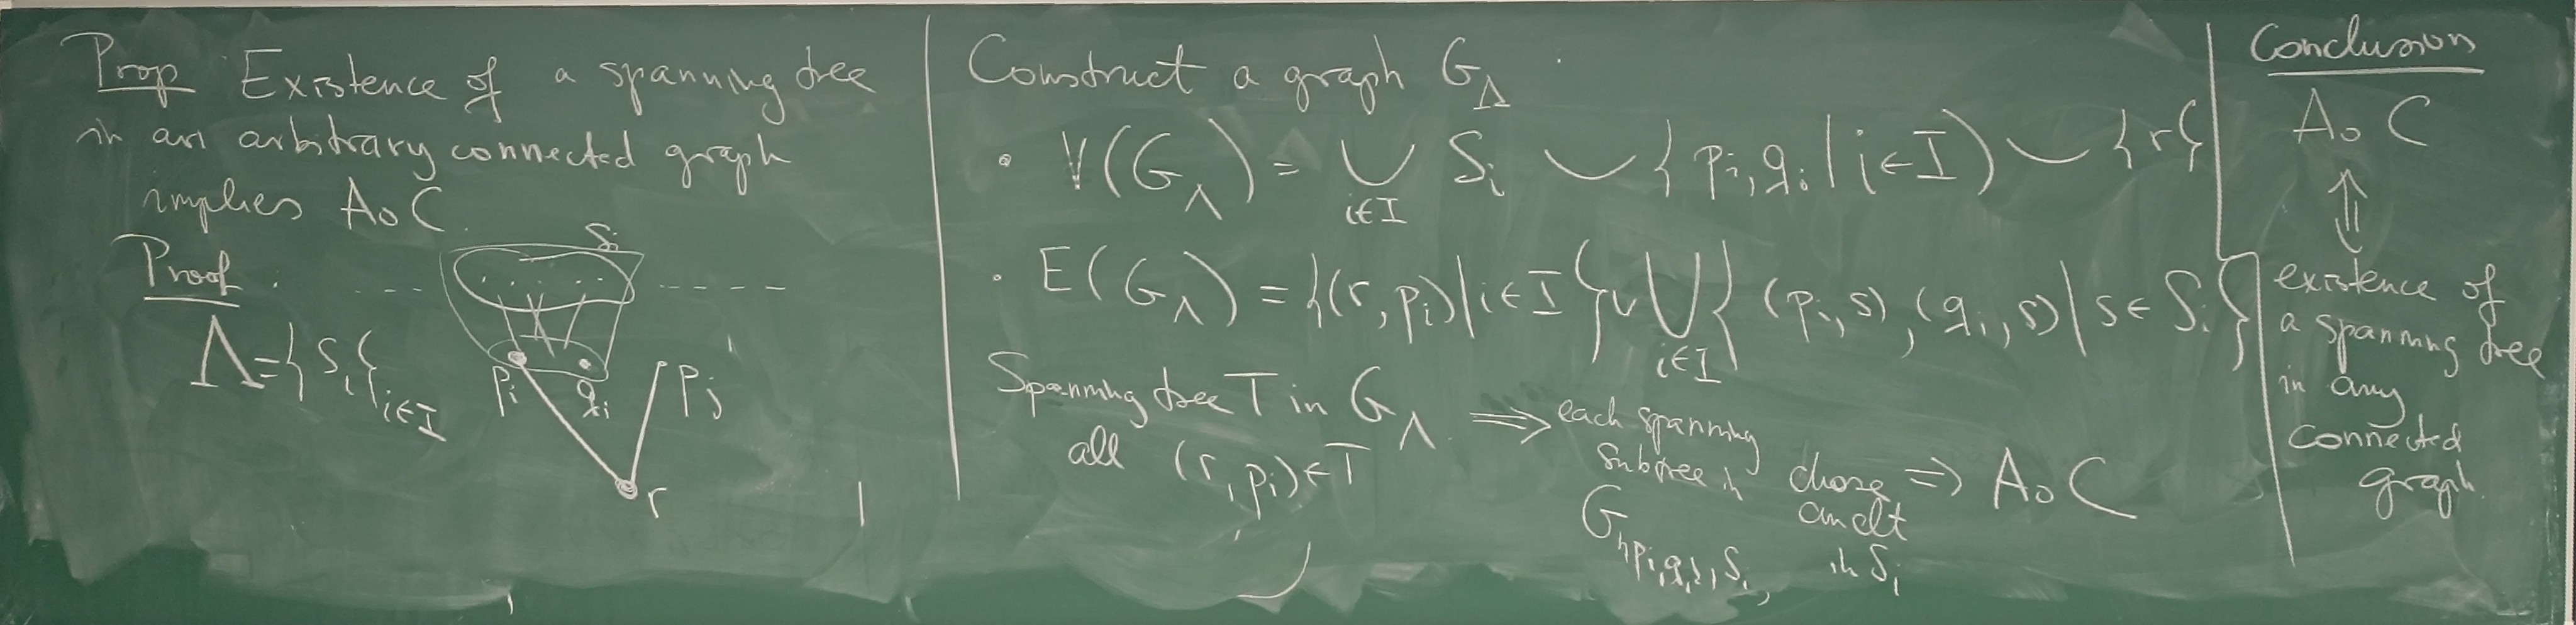 Prop Existence of a spanning tree
in an arbitrary connected graph
implies AoC.
Proof.
Λ={S_i}_{i∈I}
S_i
p_i
q_i
p_j
r
Construct a graph G_Λ
• V(G_Λ) = ∪_{i∈I} S_i ∪ {p_i, q_i | i∈I) ∪ {r}
• E(G_Λ) = {(r, p_i) | i∈I} ∪ ⋃_{i∈I} { (p_i, s), (q_i, s) | s∈S_i }
Spanning tree T in G_Λ ⇒
all (r, p_i)∈T
each spanning
subtree in
G_{{p_i,q_i},S_i}
chose
an elt
in S_i
⇒ AoC
Conclusion
AoC
⇕
existence of
a spanning tree
in any
connected
graph.